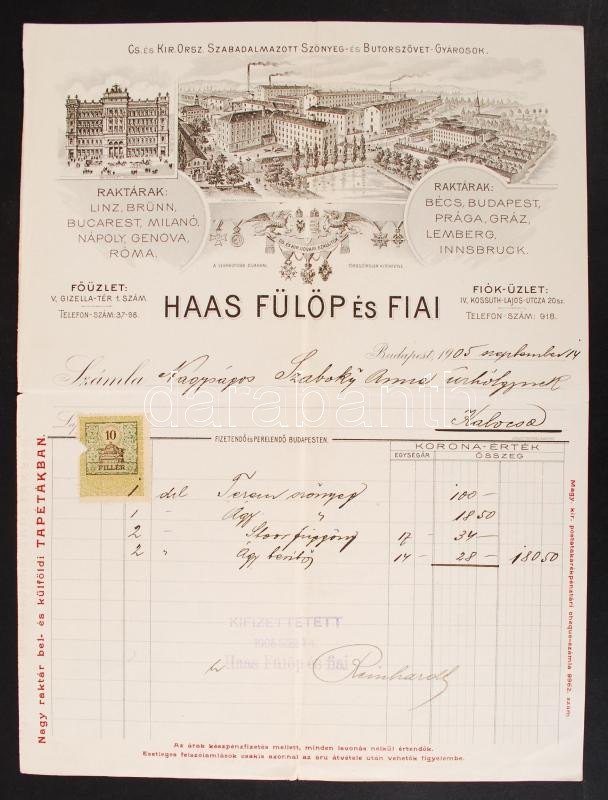 CS. ÉS KIR. ORSZ. SZABADALMAZOTT SZŐNYEG- ÉS BUTORSZÖVET-GYÁROSOK.
RAKTÁRAK:
LINZ, BRÜNN,
BUCAREST, MILANÓ,
NÁPOLY, GENOVA,
RÓMA.
RAKTÁRAK:
BÉCS, BUDAPEST,
PRÁGA, GRÁZ,
LEMBERG,
INNSBRUCK.
FŐÜZLET:
V, GIZELLA-TÉR 1. SZÁM.
TELEFON-SZÁM: 37-96.
HAAS FÜLÖP ÉS FIAI
FIÓK-ÜZLET:
IV. KOSSUTH-LAJOS-UTCZA 20 SZ.
TELEFON-SZÁM: 918.
Budapest, 1905 september 14
Számla Nagyságos Szaboky Anna úrhölgynek
Kalocsa
darabanth
10
FILLÉR
FIZETENDŐ ÉS PERELENDŐ BUDAPESTEN.
KORONA-ÉRTÉK
EGYSÉGÁR
ÖSSZEG
1 db Terem szőnyeg 100 –
1 „ Ágy „ 18 50
2 „ Stoor függöny 17 – 34 –
2 „ Ágy 14 – 28 – 180 50
KIFIZETTETETT
Haas Fülöp és fiai
Reinhardt
Nagy raktár bel- és külföldi TAPÉTÁKBAN.
Magy. kir. postatakarékpénztári cheque-számla 9962. szám.
Az árak készpénzfizetés mellett, minden levonás nélkül értendők.
Esetleges felszólamlások csakis azonnal az áru átvétele után vehetők figyelembe.